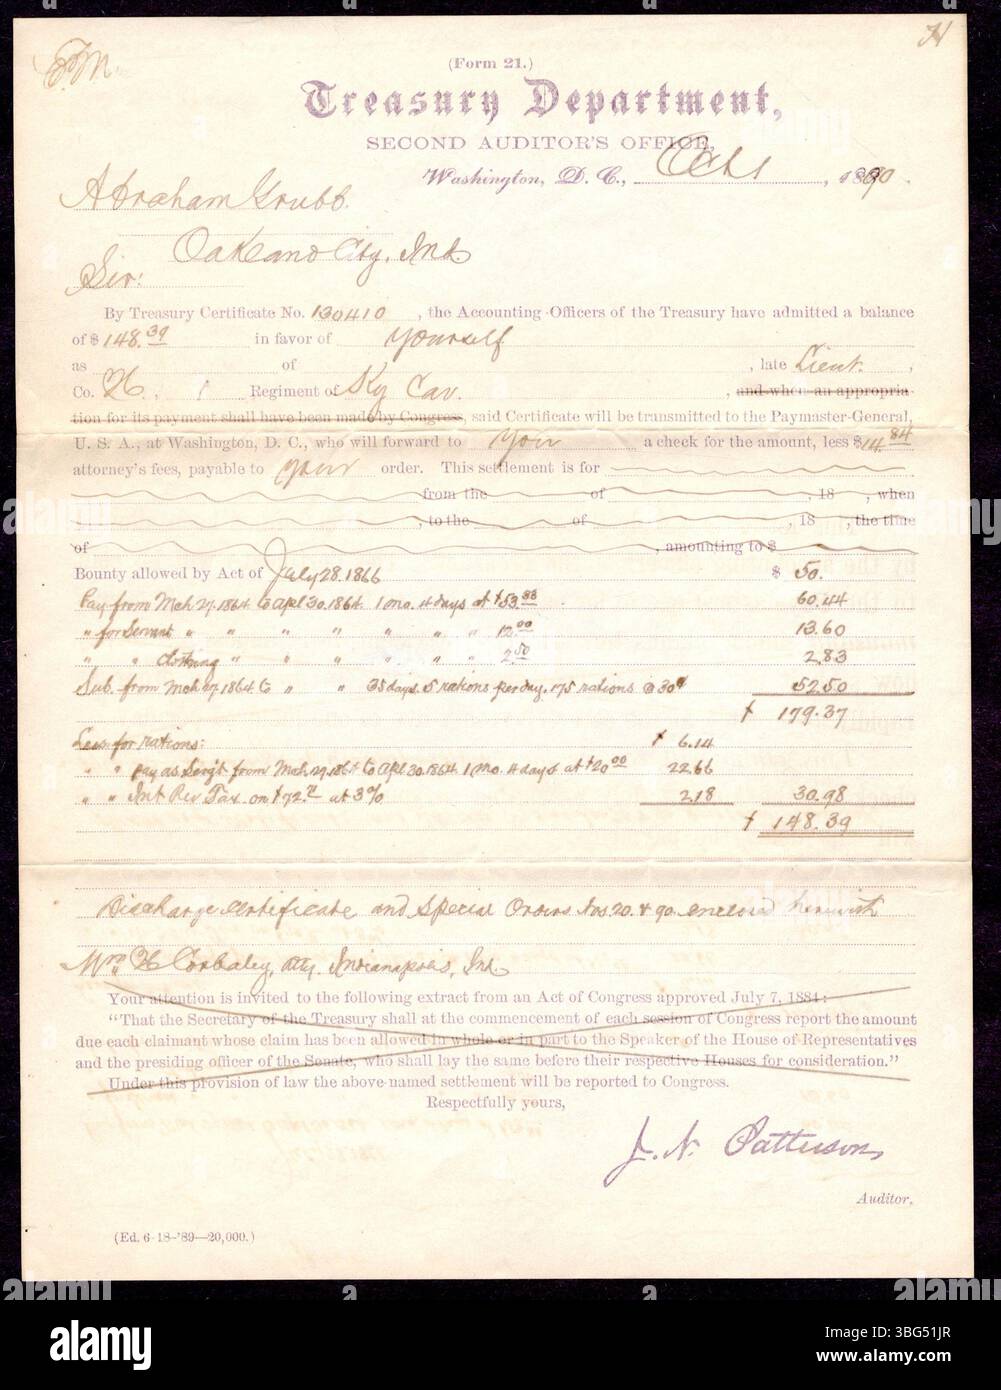 F.M.
H
(Form 21.)
Treasury Department,
SECOND AUDITOR'S OFFICE,
Washington, D. C., Oct 1, 1890.
Abraham Grubb.
Oakland City, Ind.
Sir:
By Treasury Certificate No. 130410, the Accounting Officers of the Treasury have admitted a balance
of $148.39 in favor of yourself
as of , late Lieut.,
Co. H., 1 Regiment of Ky Cav., and when an appropria
tion for its payment shall have been made by Congress, said Certificate will be transmitted to the Paymaster-General,
U. S. A., at Washington, D. C., who will forward to you a check for the amount, less $14.84
attorney's fees, payable to your order. This settlement is for
from the of , 18 , when
, to the of , 18 , the time
of , amounting to $
Bounty allowed by Act of July 28. 1866 $ 50.
Pay from Mch 27. 1864 to Apl 30. 1864. 1 mo. 4 days at $53.83 60.44
" for Servant " " " " " " " 12.00 13.60
" " Clothing " " " " " " 2.50 2.83
Sub. from Mch 27. 1864 to " " 35 days. 5 rations per day. 175 rations @ 30¢ 52.50
$ 179.37
Less for rations: $ 6.14
" " pay as Sergt from Mch 27. 1864 to Apl 30. 1864. 1 mo. 4 days at $20.00 22.66
" " Int Rev Tax on $72. at 3% 2.18 30.98
$ 148.39
Discharge Certificate and Special Orders Nos 20 & 90 enclosed herewith
H Corbaley, atty. Indianapolis, Ind
Your attention is invited to the following extract from an Act of Congress approved July 7, 1884:
"That the Secretary of the Treasury shall at the commencement of each session of Congress report the amount
due each claimant whose claim has been allowed in whole or in part to the Speaker of the House of Representatives
and the presiding officer of the Senate, who shall lay the same before their respective Houses for consideration."
Under this provision of law the above-named settlement will be reported to Congress.
Respectfully yours,
J. N. Patterson
Auditor.
(Ed. 6-18-'89—20,000.)
alamy
Image ID: 3BG51JR
www.alamy.com